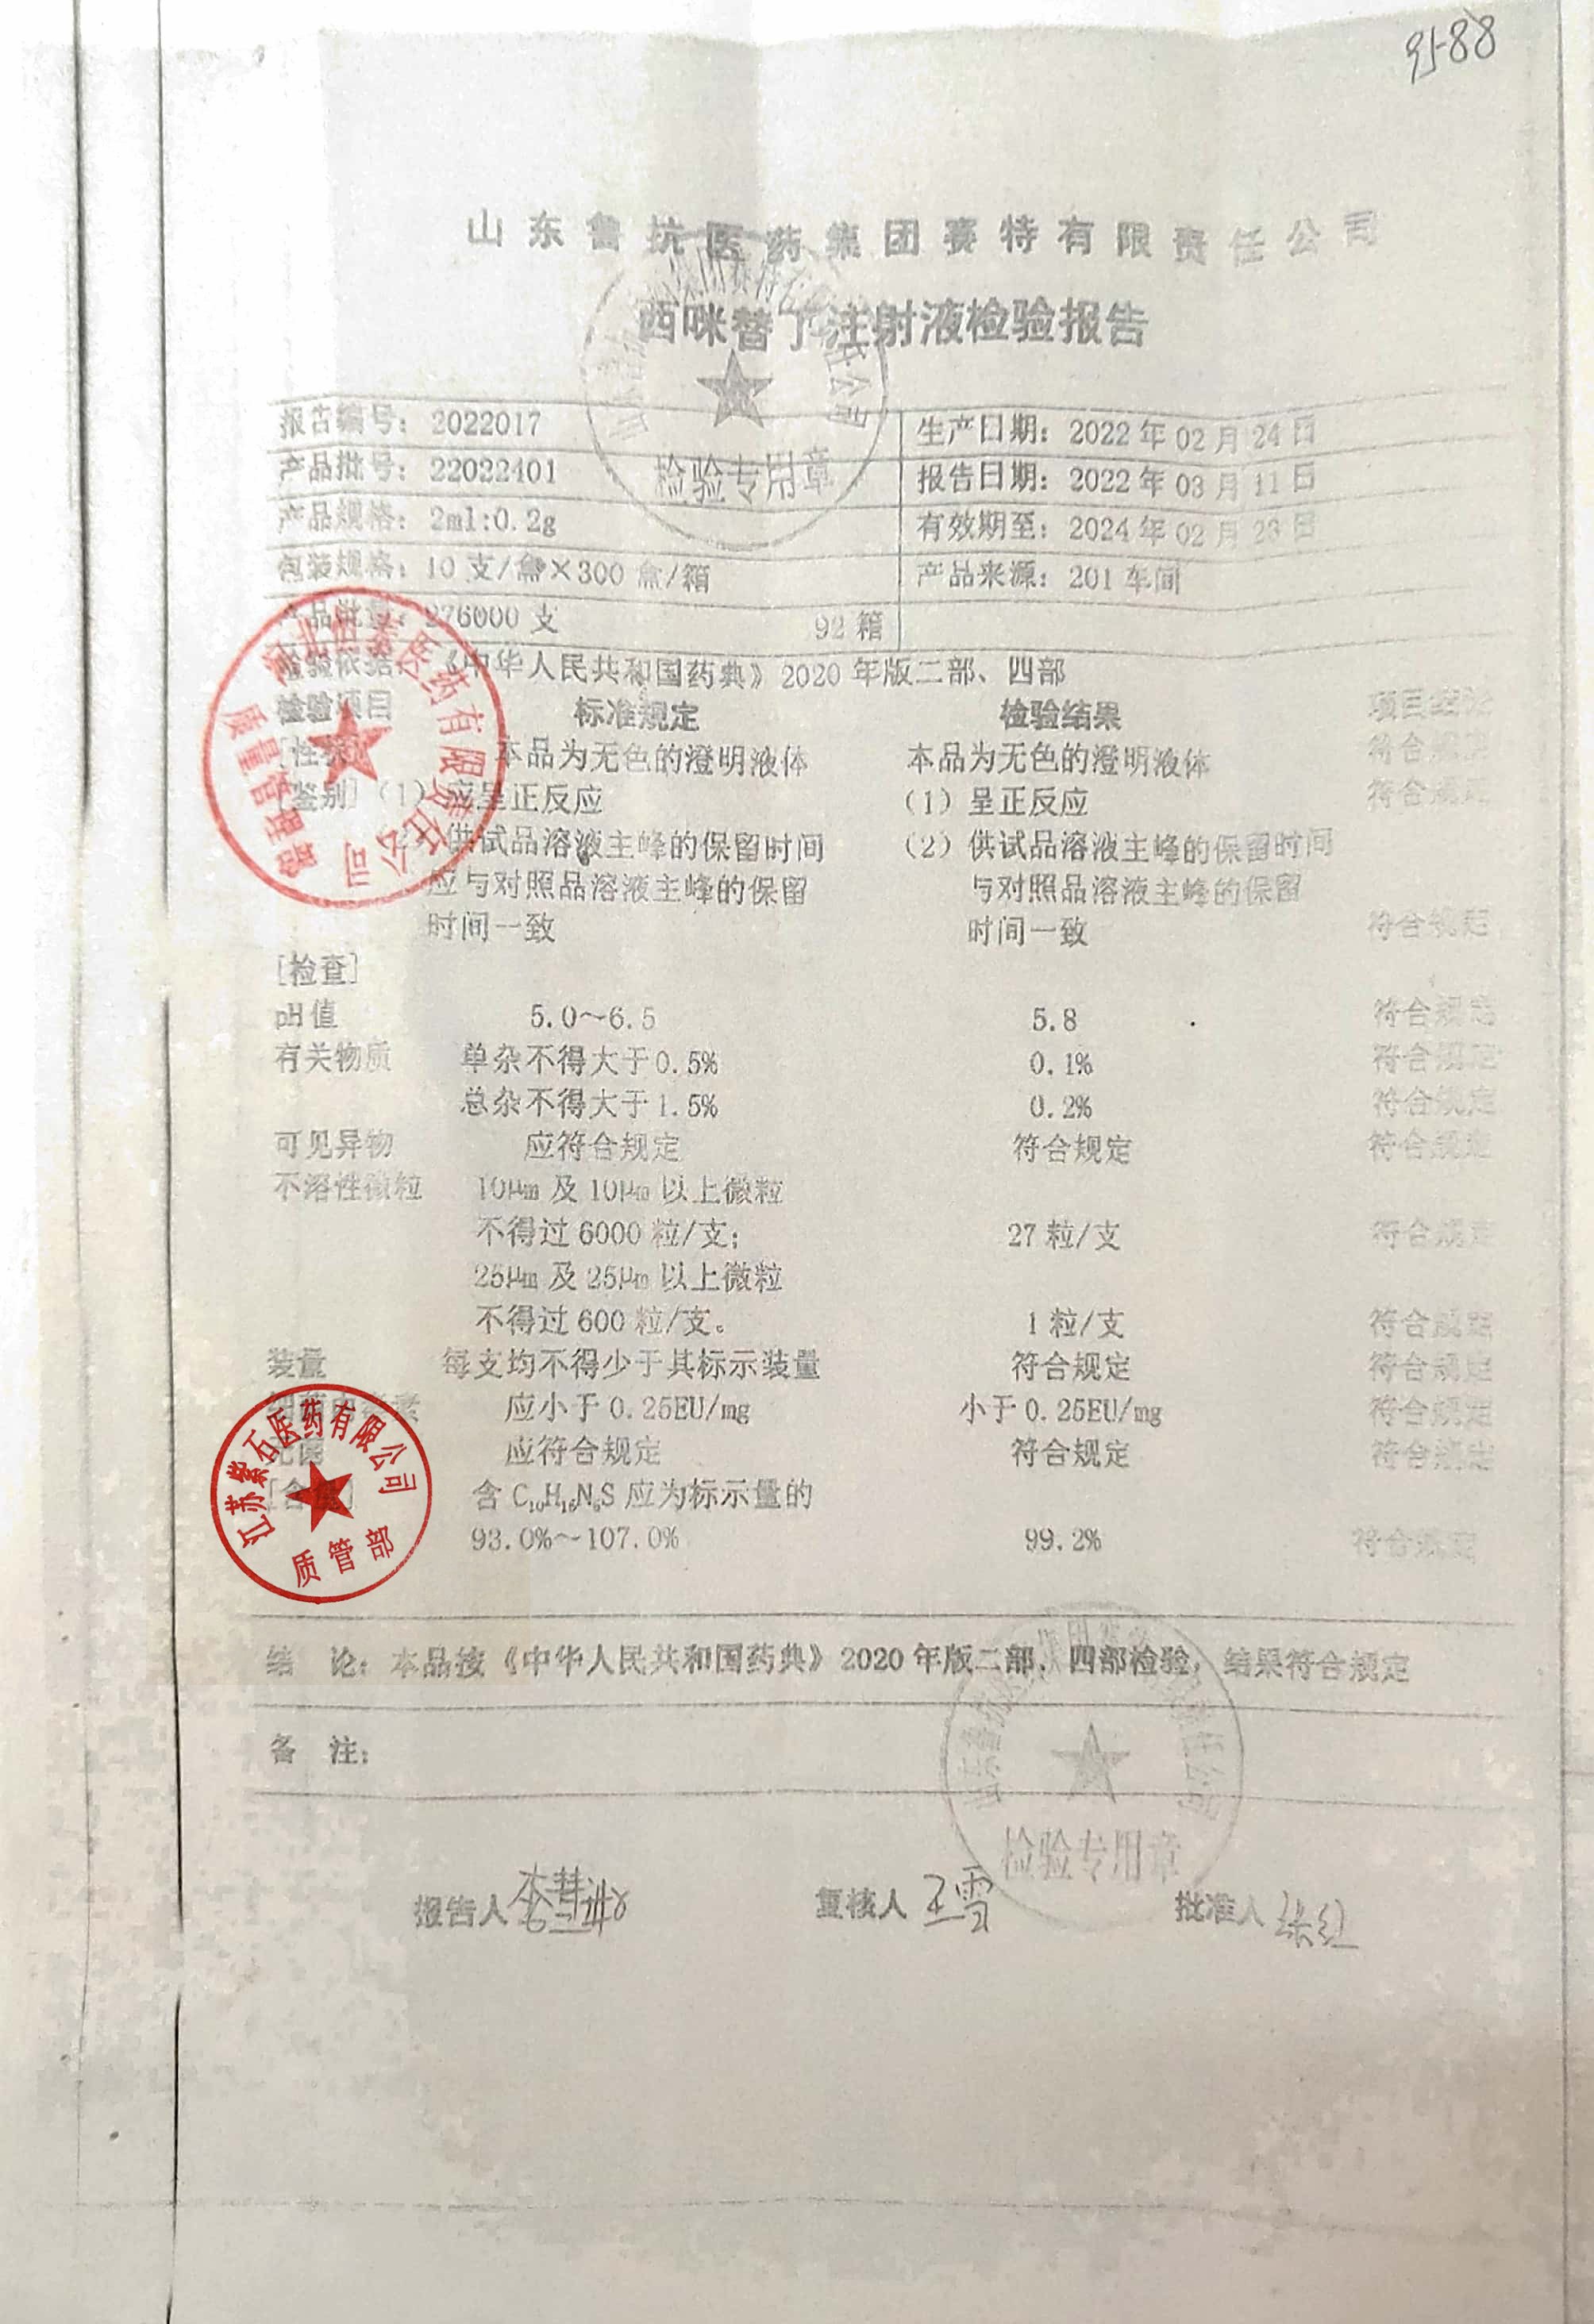 95-88
山东鲁抗医药集团赛特有限责任公司
西咪替丁注射液检验报告
报告编号：2022017 生产日期：2022年02月24日
产品批号：22022401 报告日期：2022年03月11日
产品规格：2ml:0.2g 有效期至：2024年02月23日
包装规格：10支/盒×300盒/箱 产品来源：201车间
产品批量：276000支 92箱
检验专用章
检验依据：《中华人民共和国药典》2020年版二部、四部
检验项目 标准规定 检验结果 项目结论
[性状] 本品为无色的澄明液体 本品为无色的澄明液体 符合规定
[鉴别]（1）应呈正反应 （1）呈正反应 符合规定
供试品溶液主峰的保留时间 （2）供试品溶液主峰的保留时间
应与对照品溶液主峰的保留 与对照品溶液主峰的保留
时间一致 时间一致 符合规定
医药有限责任公司
质量管理部
[检查]
pH值 5.0～6.5 5.8 符合规定
有关物质 单杂不得大于0.5% 0.1% 符合规定
总杂不得大于1.5% 0.2% 符合规定
可见异物 应符合规定 符合规定 符合规定
不溶性微粒 10μm及10μm以上微粒
不得过6000粒/支； 27粒/支 符合规定
25μm及25μm以上微粒
不得过600粒/支。 1粒/支 符合规定
装量 每支均不得少于其标示装量 符合规定 符合规定
细菌内毒素 应小于0.25EU/mg 小于0.25EU/mg 符合规定
无菌 应符合规定 符合规定 符合规定
[含量] 含C₁₀H₁₆N₆S应为标示量的
93.0%～107.0% 99.2% 符合规定
江苏紫石医药有限公司
质管部
结 论：本品按《中华人民共和国药典》2020年版二部、四部检验，结果符合规定
备 注：
检验专用章
报告人 复核人 王雪 批准人 张红